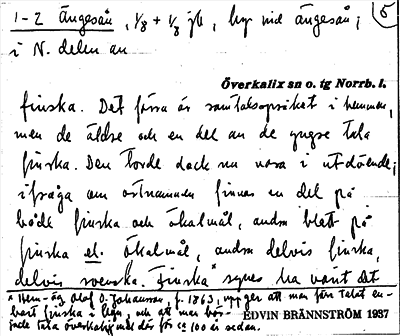 1-2 Ängeså, 1/8 + 1/8 jb, by vid Ängesån, 5
i N. delen av
Överkalix sn o. tg Norrb. l.
finska. Det förra är samtalsspråket i hemmen,
men de äldre och en del av de yngre tala
finska. Den torde dock nu vara i utdöende;
ifråga om ortnamnen finnas en del på
både finska och ökalmål, andra blott på
finska el. ökalmål, andra delvis finska,
delvis svenska. Finska* synes ha varit det
* Hem.-äg. Olof O. Johansson, f. 1863, uppger att man förr talat en-
bart finska i byn, och att man bör-
jade tala överkalixmål där för c:a 100 år sedan.
EDVIN BRÄNNSTRÖM 1937